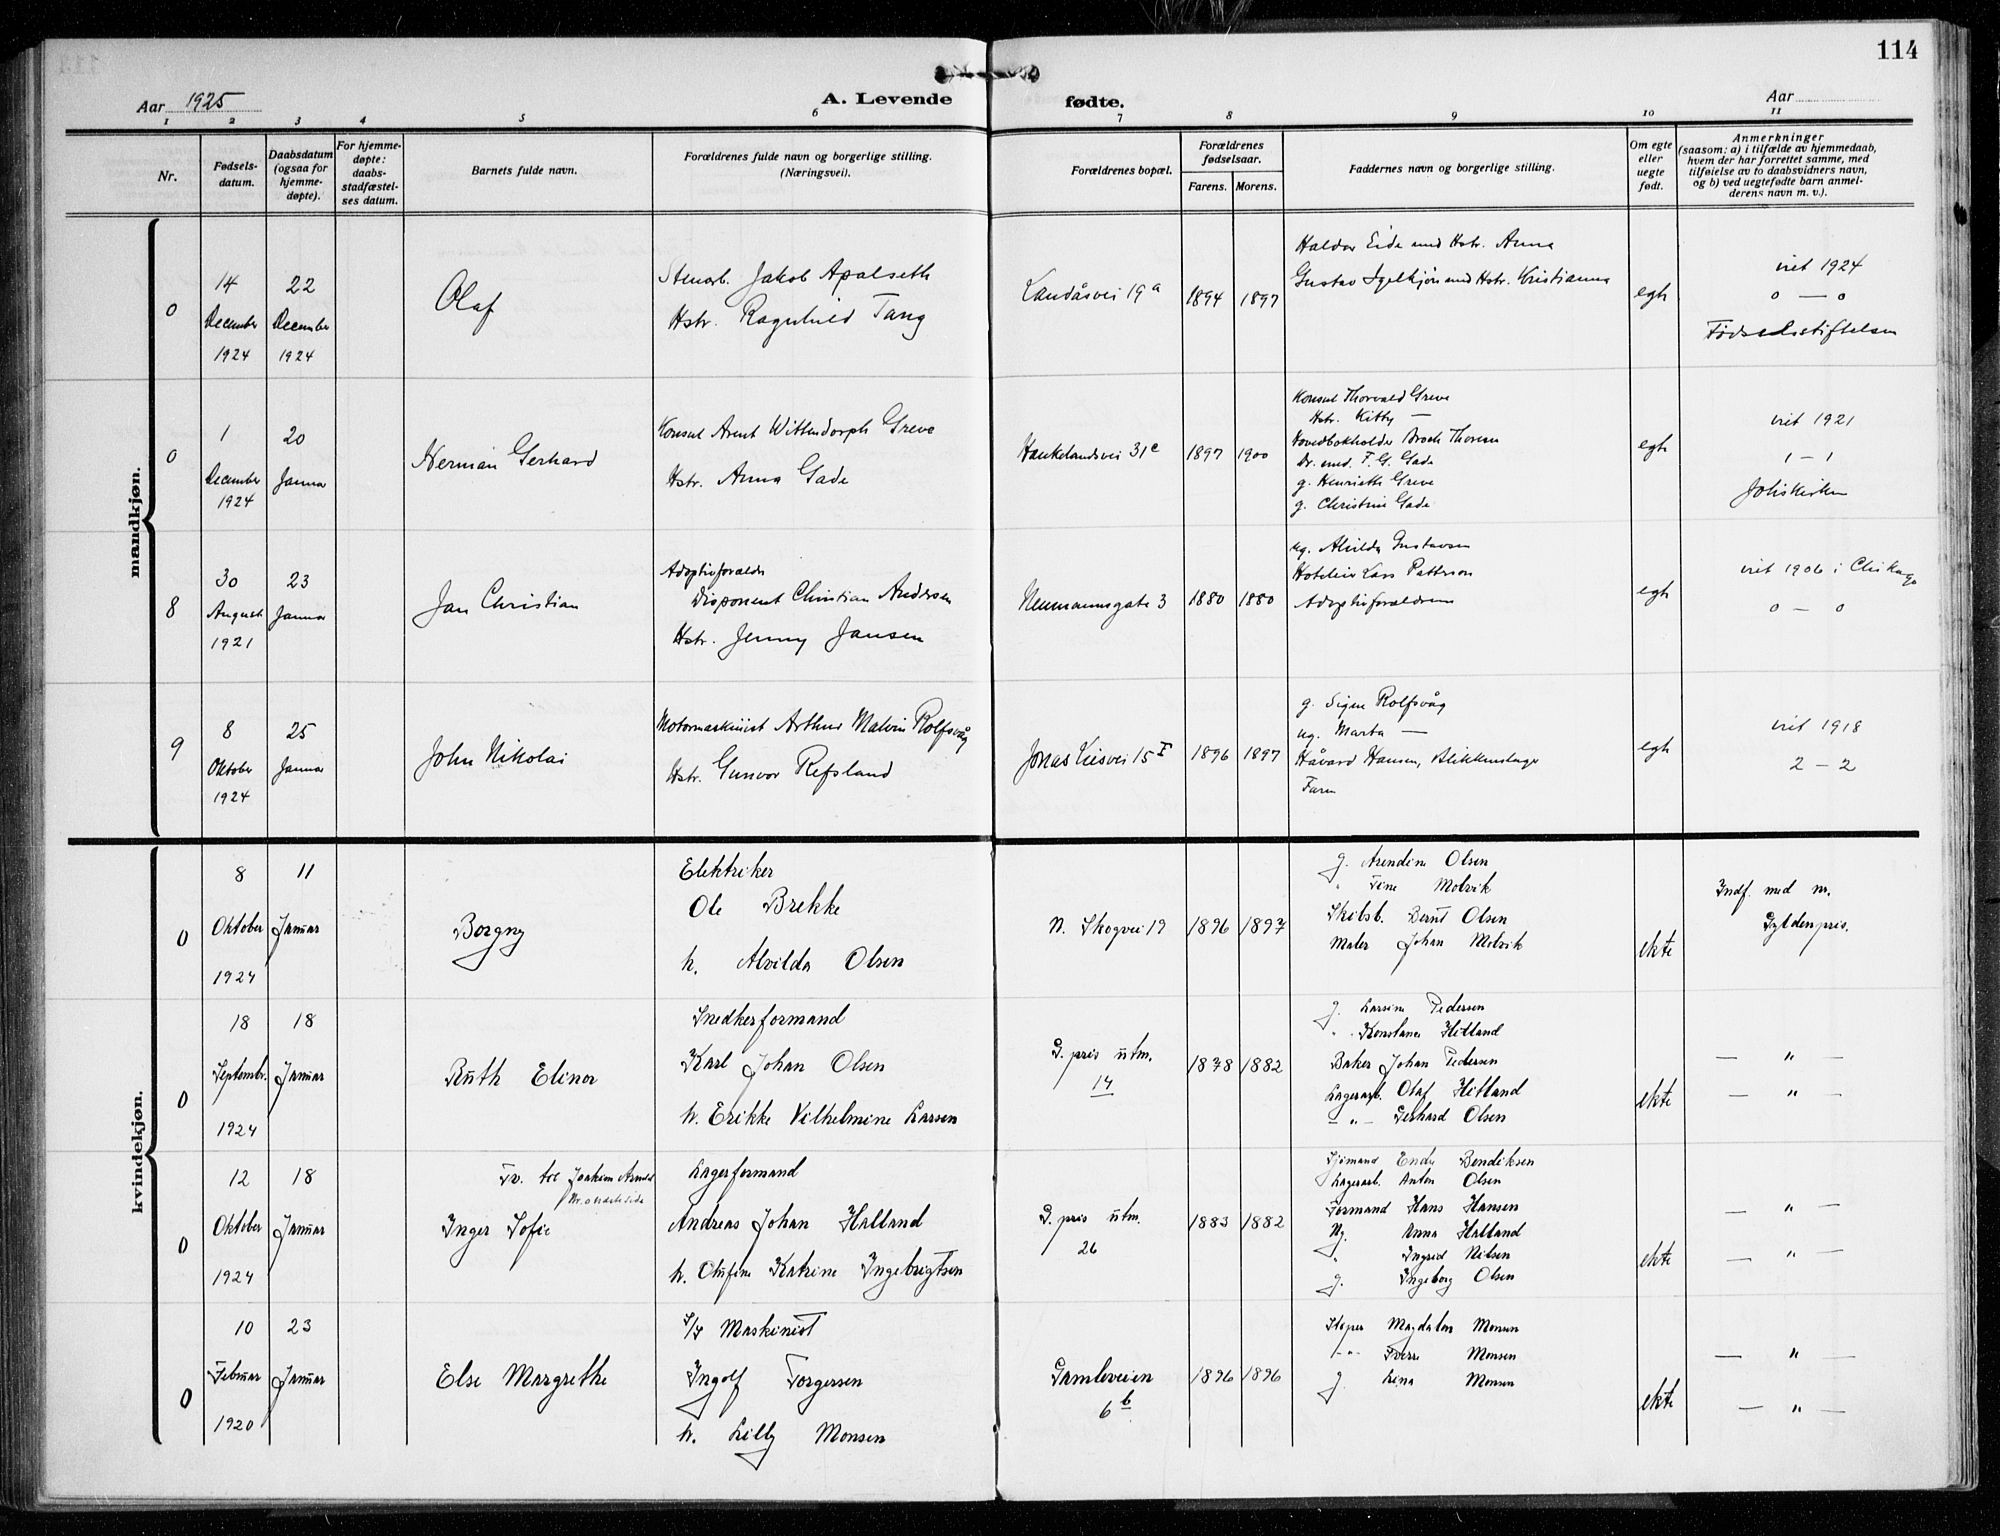 114
Aar 1925
A. Levende fødte.
Aar
1 2 3 4 5 6 7 8 9 10 11
Nr.
Fødsels-
datum.
Daabsdatum
(ogsaa for
hjemme-
døpte).
For hjemme-
døpte:
daabs-
stadfæstel-
ses datum.
Barnets fulde navn.
Forældrenes fulde navn og borgerlige stilling.
(Næringsvei).
Forældrenes bopæl.
Forældrenes
fødselsaar.
Farens. Morens.
Faddernes navn og borgerlige stilling.
Om egte
eller
uegte
født.
Anmerkninger
(saasom: a) i tilfælde av hjemmedaab,
hvem der har forrettet samme, med
tilføielse av to daabsvidners navn,
og b) ved uegtefødte barn anmel-
derens navn m. v.).
mandkjøn.
0
14
December
1924
22
December
1924
Olaf
Stenarb. Jakob Apalseth
Hstr. Ragnhild Tang
Landåsvei 19a
1894
1897
Haldor Eide med Hstr. Anna
Gustav Igelkjøn med Hstr. Kristianna
egte
viet 1924
0 — 0
Fødselsstiftelsen
0
1
December
1924
20
Januar
Herman Gerhard
Konsul Arent Wittendorph Greve
Hstr. Anna Gade
Haukelandsvei 31c
1897
1900
Konsul Thorvald Greve
Hstr. Kitty —
Hovedbokholder Broch Thorsen
Dr. med. F. G. Gade
g. Henriette Greve
g. Christine Gade
egte
viet 1921
1 — 1
Johskirken
8
30
August
1921
23
Januar
Jan Christian
Adoptivforældre
Disponent Christian Andersen
Hstr. Jenny Jansen
Neumannsgate 3
1880
1880
ug. Alvilda Gustavsen
Hoteleier Lars Patterson
Adoptivforældrene
egte
viet 1906 i Chikago
0 — 0
9
8
Oktober
1924
25
Januar
John Nikolai
Motormaskinist Arthur Malvin Rolfsvåg
Hstr. Gunvor Refsland
Jonas Liesvei 15 I
1896
1897
g. Signe Rolfsvåg
ug. Marta —
Håvard Hansen, Blikkenslager
Faren
egte
viet 1918
2 — 2
kvindekjøn.
0
8
Oktober
1924
11
Januar
Borgny
Elektriker
Ole Brekke
h. Alvilda Olsen
N. Skogvei 19
1896
1897
g. Arendine Olsen
" Tine Molvik
Skibsb. Bernt Olsen
Maler Johan Molvik
ekte
Indf. med nr.
Gyldenpris.
0
18
Septembr.
1924
18
Januar
Ruth Elinor
Snedkerformand
Karl Johan Olsen
h. Erikke Vilhelmine Larsen
G. pris utm.
14
1878
1882
g. Larsine Pedersen
" Konstanse Hitland
Baker Johan Pedersen
Lagerarb. Olaf Hitland
— " — Gerhard Olsen
ekte
— " —
— " —
0
12
Oktober
1924
18
Januar
Tv. til Joakim Arnold
Nr. 0 næste side
Inger Sofie
Lagerformand
Andreas Johan Halland
h. Olufine Katrine Ingebrigtsen
G. pris utm.
26
1883
1882
Sjømand Endre Bendiksen
Lagerarb. Anton Olsen
Formand Hans Hansen
Ug. Anna Halland
" Ingrid Nilsen
g. Ingeborg Olsen
ekte
— " —
— " —
0
10
Februar
1920
23
Januar
Else Margrethe
S/S Maskinist
Ingolf Torgersen
h. Lilly Monsen
Gamleveien
6b
1896
1896
Støper Magdalon Monsen
— " — Sverre Monsen
g. Lina Monsen
ekte
— " —
— " —